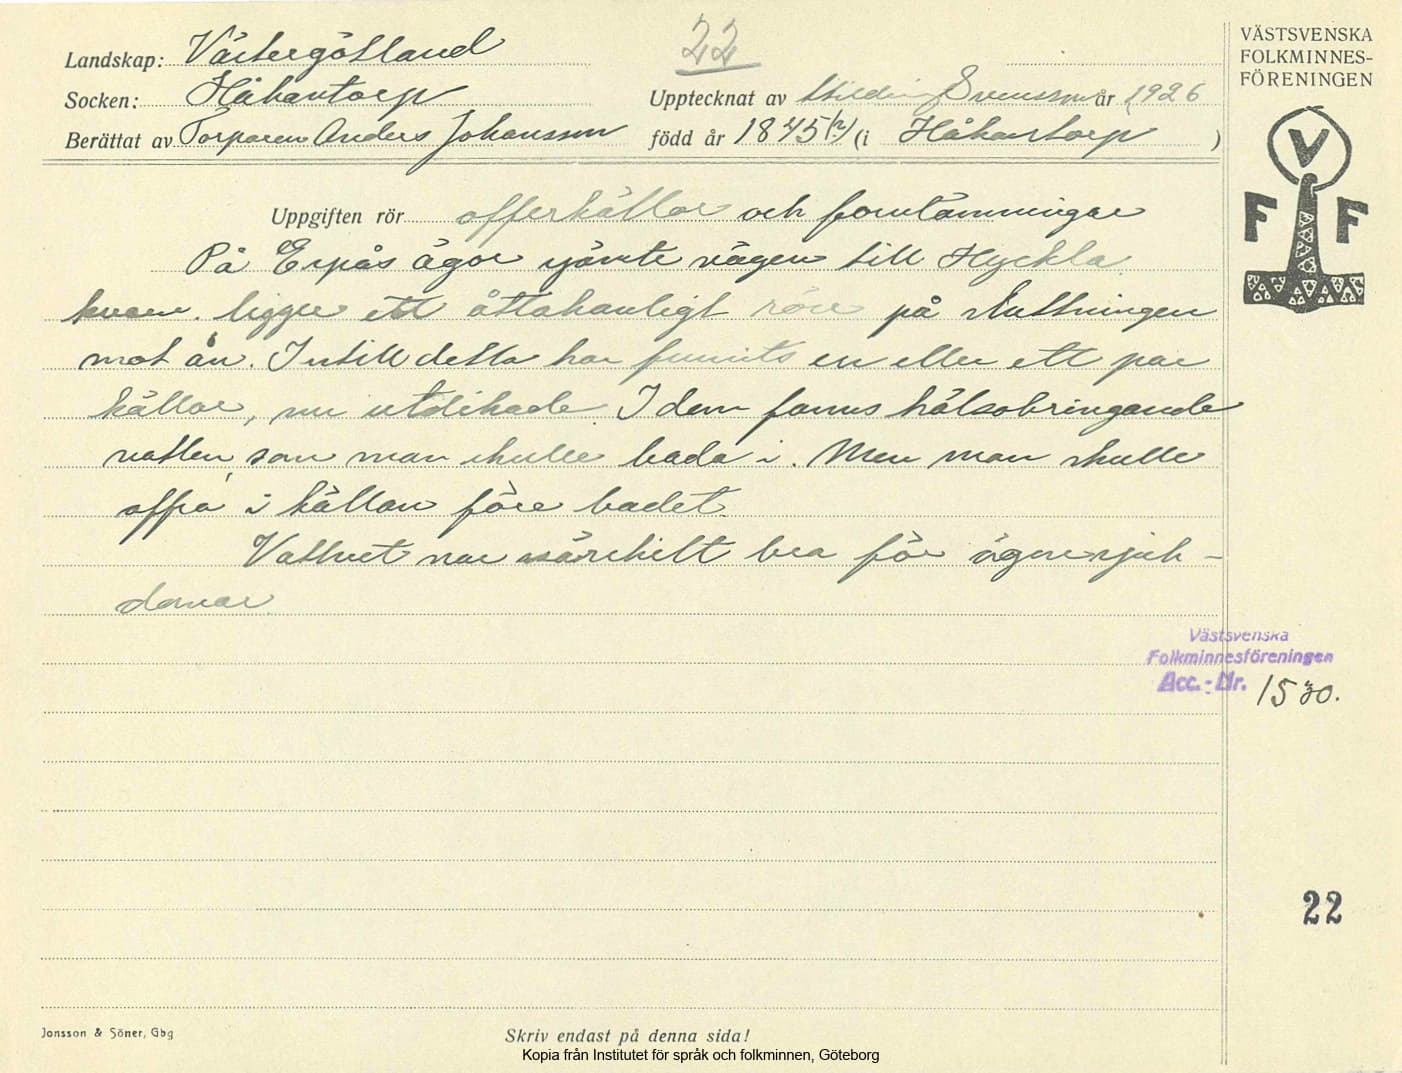 22
VÄSTSVENSKA
FOLKMINNES-
FÖRENINGEN
Landskap: Västergötland
Socken: Håkantorp
Upptecknat av Hilding Svensson år 1926
Berättat av Torparen Anders Johansson född år 1845(?) (i Håkantorp )
V
F F
Uppgiften rör offerkällor och fornlämningar
På Erpås ägor jämte vägen till Hyckla
kvarn. ligger ett åttahanligt röse på sluttningen
mot ån. Intill detta har funnits en eller ett par
källor, nu utdikade. I dem fanns hälsobringande
vatten, som man skulle bada i. Men man skulle
offra i källan före badet.
Vattnet var särskilt bra för ögonsjuk-
domar.
Västsvenska
Folkminnesföreningen
Acc.-Nr. 1530.
22
Jonsson & Söner, Gbg
Skriv endast på denna sida!
Kopia från Institutet för språk och folkminnen, Göteborg